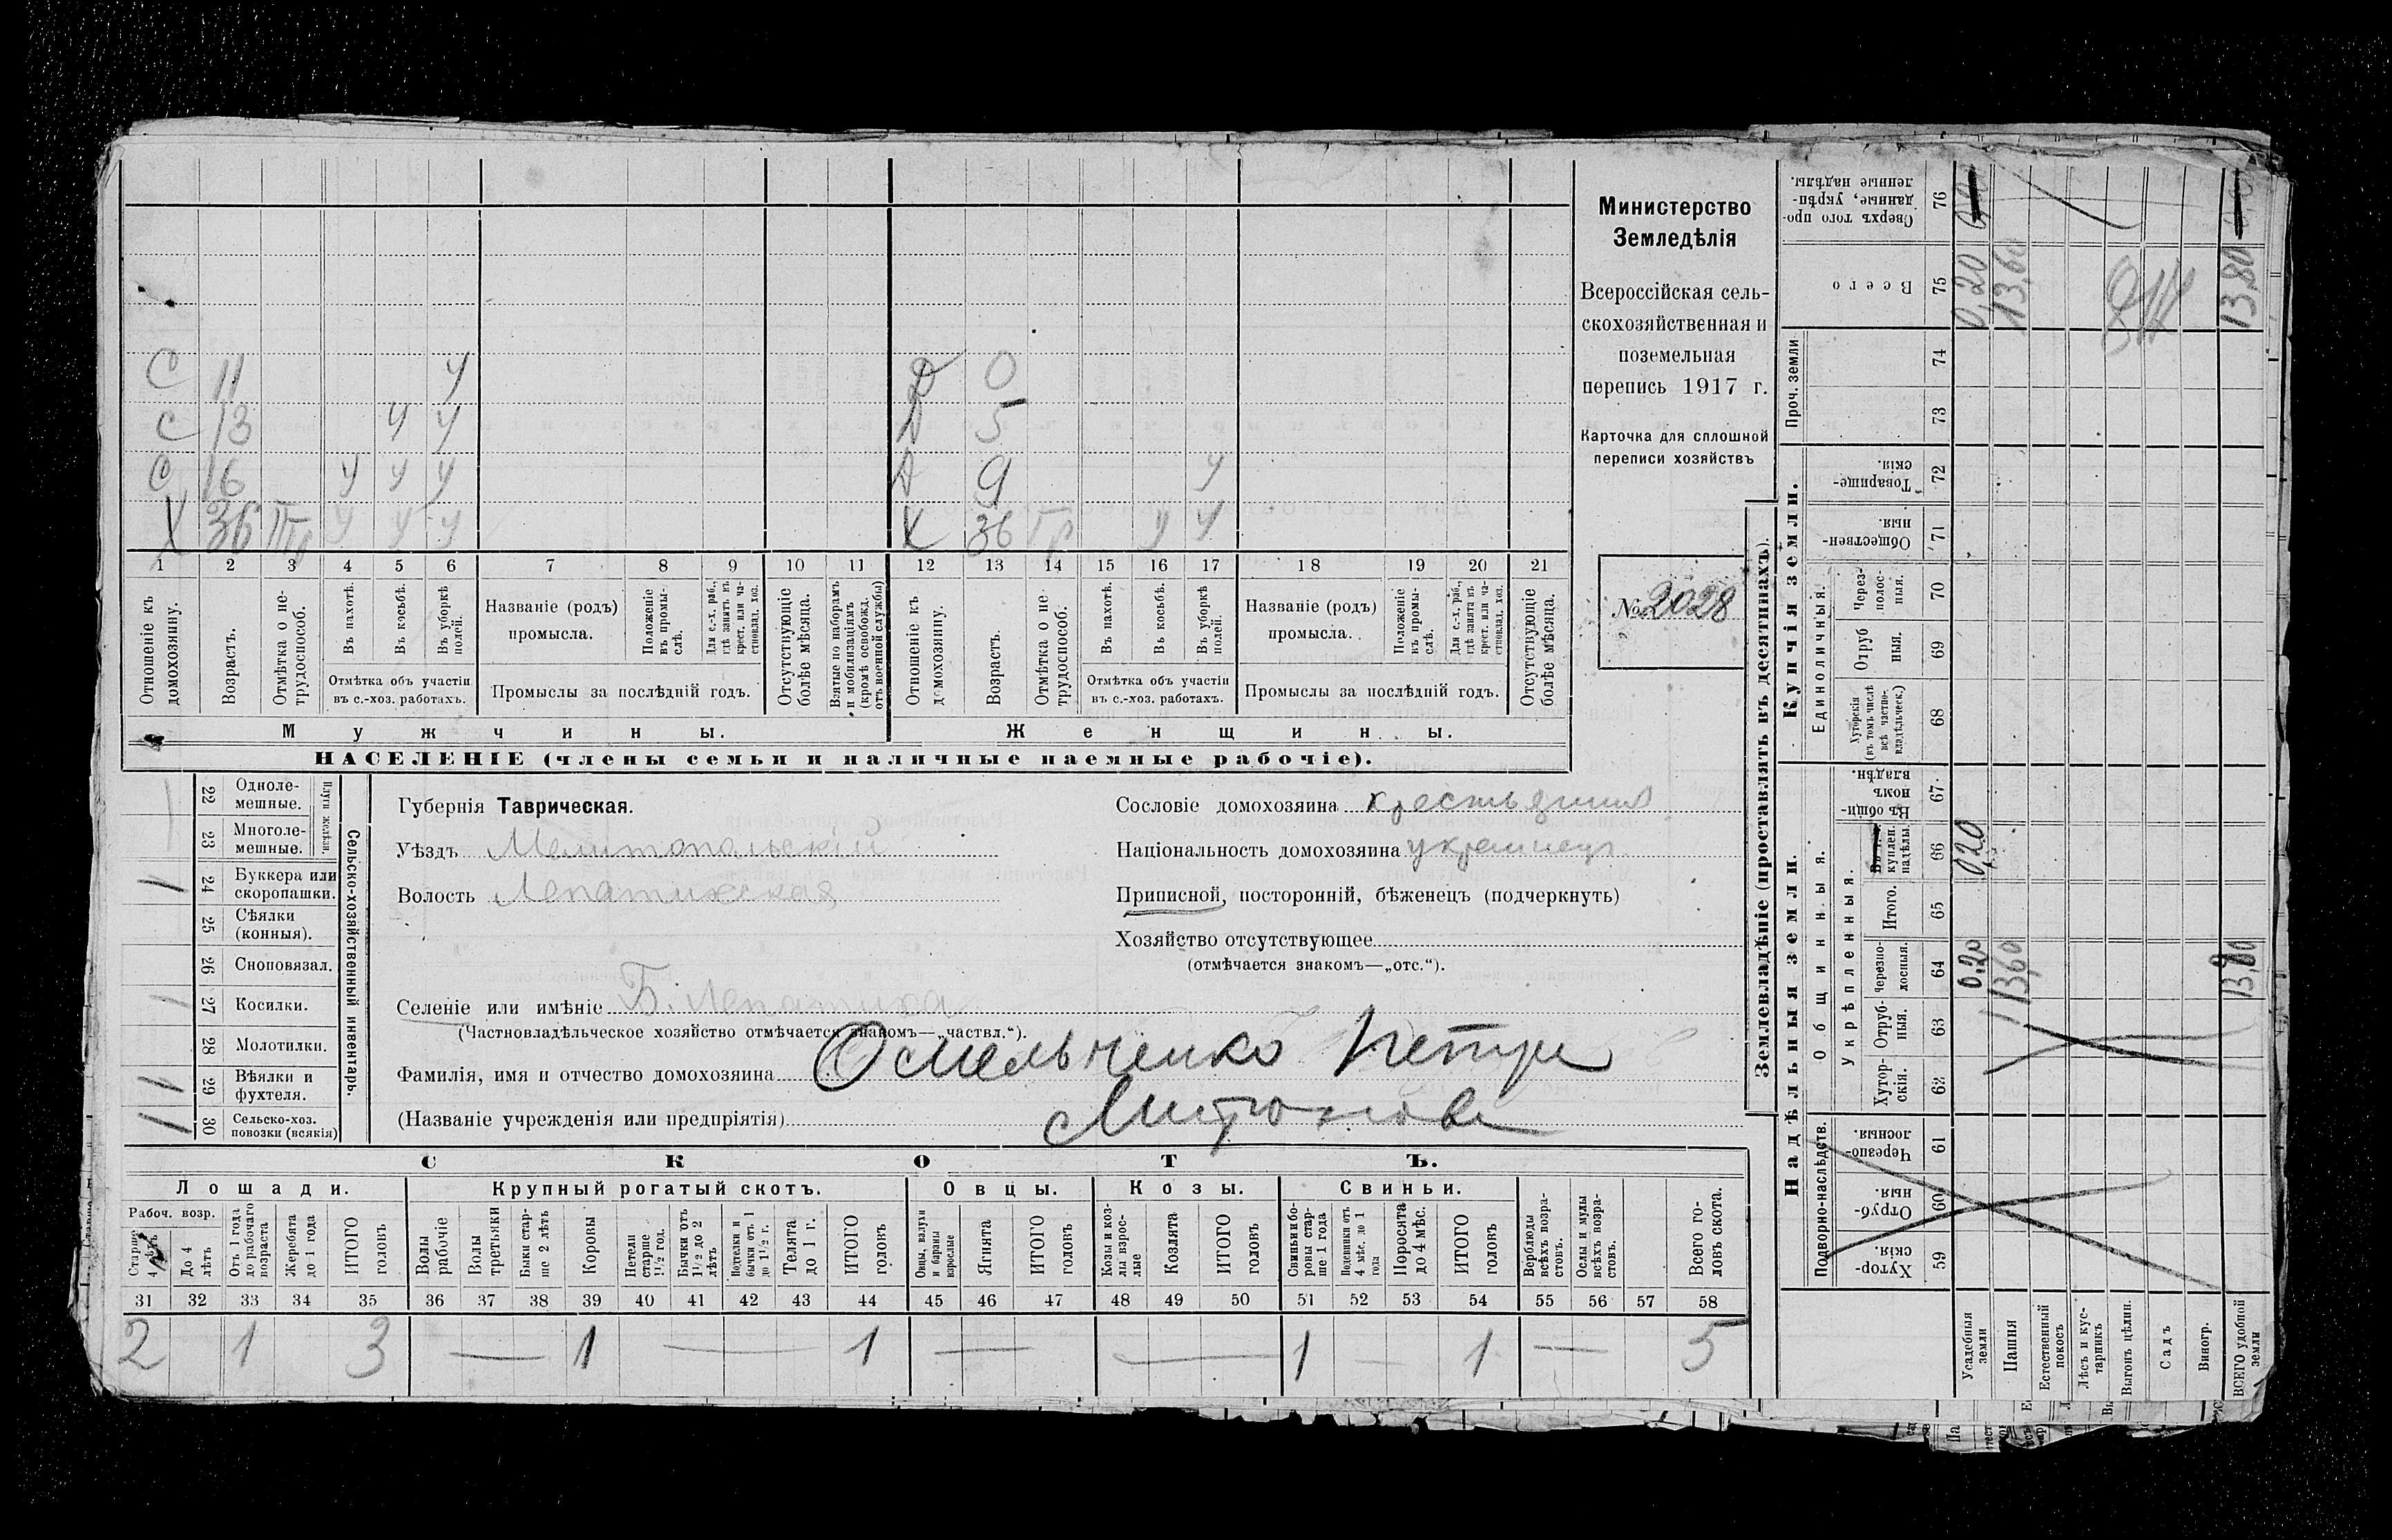 С 11 У Д 0
С 13 У У Д 5
С 16 У У У Д 9 У
Х 36 Гр У У У Х 36 Гр У У
1 2 3 4 5 6 7 8 9 10 11 12 13 14 15 16 17 18 19 20 21
Отношеніе къ домохозяину.
Возрастъ.
Отмѣтка о нетрудоспособ.
Въ пахотѣ.
Въ косьбѣ.
Въ уборкѣ полей.
Отмѣтка объ участіи
въ с.-хоз. работахъ.
Названіе (родъ)
промысла.
Положеніе въ промыслѣ.
Для с.-х. раб., гдѣ занятъ въ крест. или частновлад. хоз.
Промыслы за послѣдній годъ.
Отсутствующіе болѣе мѣсяца.
Взятые по наборамъ и мобилизаціямъ (кромѣ освобожд. отъ военной службы)
Отношеніе къ домохозяину.
Возрастъ.
Отмѣтка о нетрудоспособ.
Въ пахотѣ.
Въ косьбѣ.
Въ уборкѣ полей.
Отмѣтка объ участіи
въ с.-хоз. работахъ.
Названіе (родъ)
промысла.
Положеніе въ промыслѣ.
Для с.-х. раб., гдѣ занята въ крест. или частновлад. хоз.
Промыслы за послѣдній годъ.
Отсутствующіе болѣе мѣсяца.
Мужчины. Женщины.
НАСЕЛЕНІЕ (члены семьи и наличные наемные рабочіе).
Министерство
Земледѣлія
Всероссійская сель-
скохозяйственная и
поземельная
перепись 1917 г.
Карточка для сплошной
переписи хозяйствъ
№ 2028
Сельско-хозяйственный инвентарь.
Плуги желѣзн.
22 Однолемешные.
23 Многолемешные.
24 Буккера или скоропашки.
25 Сѣялки (конныя).
26 Сноповязал.
27 Косилки.
28 Молотилки.
29 Вѣялки и фухтеля.
30 Сельско-хоз. повозки (всякія)
Губернія Таврическая.
Уѣздъ Мелитопольскій
Волость Лепатихская
Селеніе или имѣніе Б. Лепатиха
(Частновладѣльческое хозяйство отмѣчается знакомъ—„частвл.“).
Фамилія, имя и отчество домохозяина Омельченко Петр
(Названіе учрежденія или предпріятія)
Сословіе домохозяина крестьянин
Національность домохозяина украинец
Приписной, посторонній, бѣженецъ (подчеркнуть)
Хозяйство отсутствующее
(отмѣчается знакомъ—„отс.“).
СКОТЪ.
Лошади. Крупный рогатый скотъ. Овцы. Козы. Свиньи.
Рабоч. возр.
Старше 4 лѣтъ
До 4 лѣтъ
Отъ 1 года до рабочаго возраста
Жеребята до 1 года
ИТОГО головъ
Волы рабочіе
Волы третьяки
Быки старше 2 лѣтъ
Коровы
Нетели старше 1½ год.
Бычки отъ 1½ до 2 лѣтъ
Подтелки и бычки отъ 1 до 1½ г.
Телята до 1 г.
ИТОГО головъ
Овцы, валухи и бараны взрослые
Ягнята
ИТОГО головъ
Козы и козлы взрослые
Козлята
ИТОГО головъ
Свиньи и боровы старше 1 года
Подсвинки отъ 4 мѣс. до 1 года
Поросята до 4 мѣс.
ИТОГО головъ
Верблюды всѣхъ возрастовъ.
Ослы и мулы всѣхъ возрастовъ.
Всего головъ скота.
31 32 33 34 35 36 37 38 39 40 41 42 43 44 45 46 47 48 49 50 51 52 53 54 55 56 57 58
2 1 3 — 1 — 1 — — 1 — 1 — 5
Землевладѣніе (проставлять въ десятинахъ).
Надѣльныя земли.
Купчія земли.
Подворно-наслѣдств.
Общинныя.
Укрѣпленныя.
Единоличныя.
Проч. земли
Хуторскія. 59
Отрубныя. 60
Черезполосныя. 61
Хуторскія. 62
Отрубныя. 63
Черезполосныя. 64
Итого. 65
куплен. надѣлы. 66
Въ общинномъ владѣн. 67
Хуторскія (въ томъ числѣ всѣ частновладѣльческ.) 68
Отрубныя. 69
Черезполосныя. 70
Общественныя. 71
Товарищескія. 72
73
74
Всего 75
Сверхъ того проданные, укрѣпленные надѣлы. 76
Усадебныя земли 0,20 0,20 0,20
Пашня 13,60 13,60
Естественный покосъ
Лѣсъ и кустарникъ
Выгонъ цѣлин.
Садъ
Виногр.
ВСЕГО удобной земли 13,80 13,80